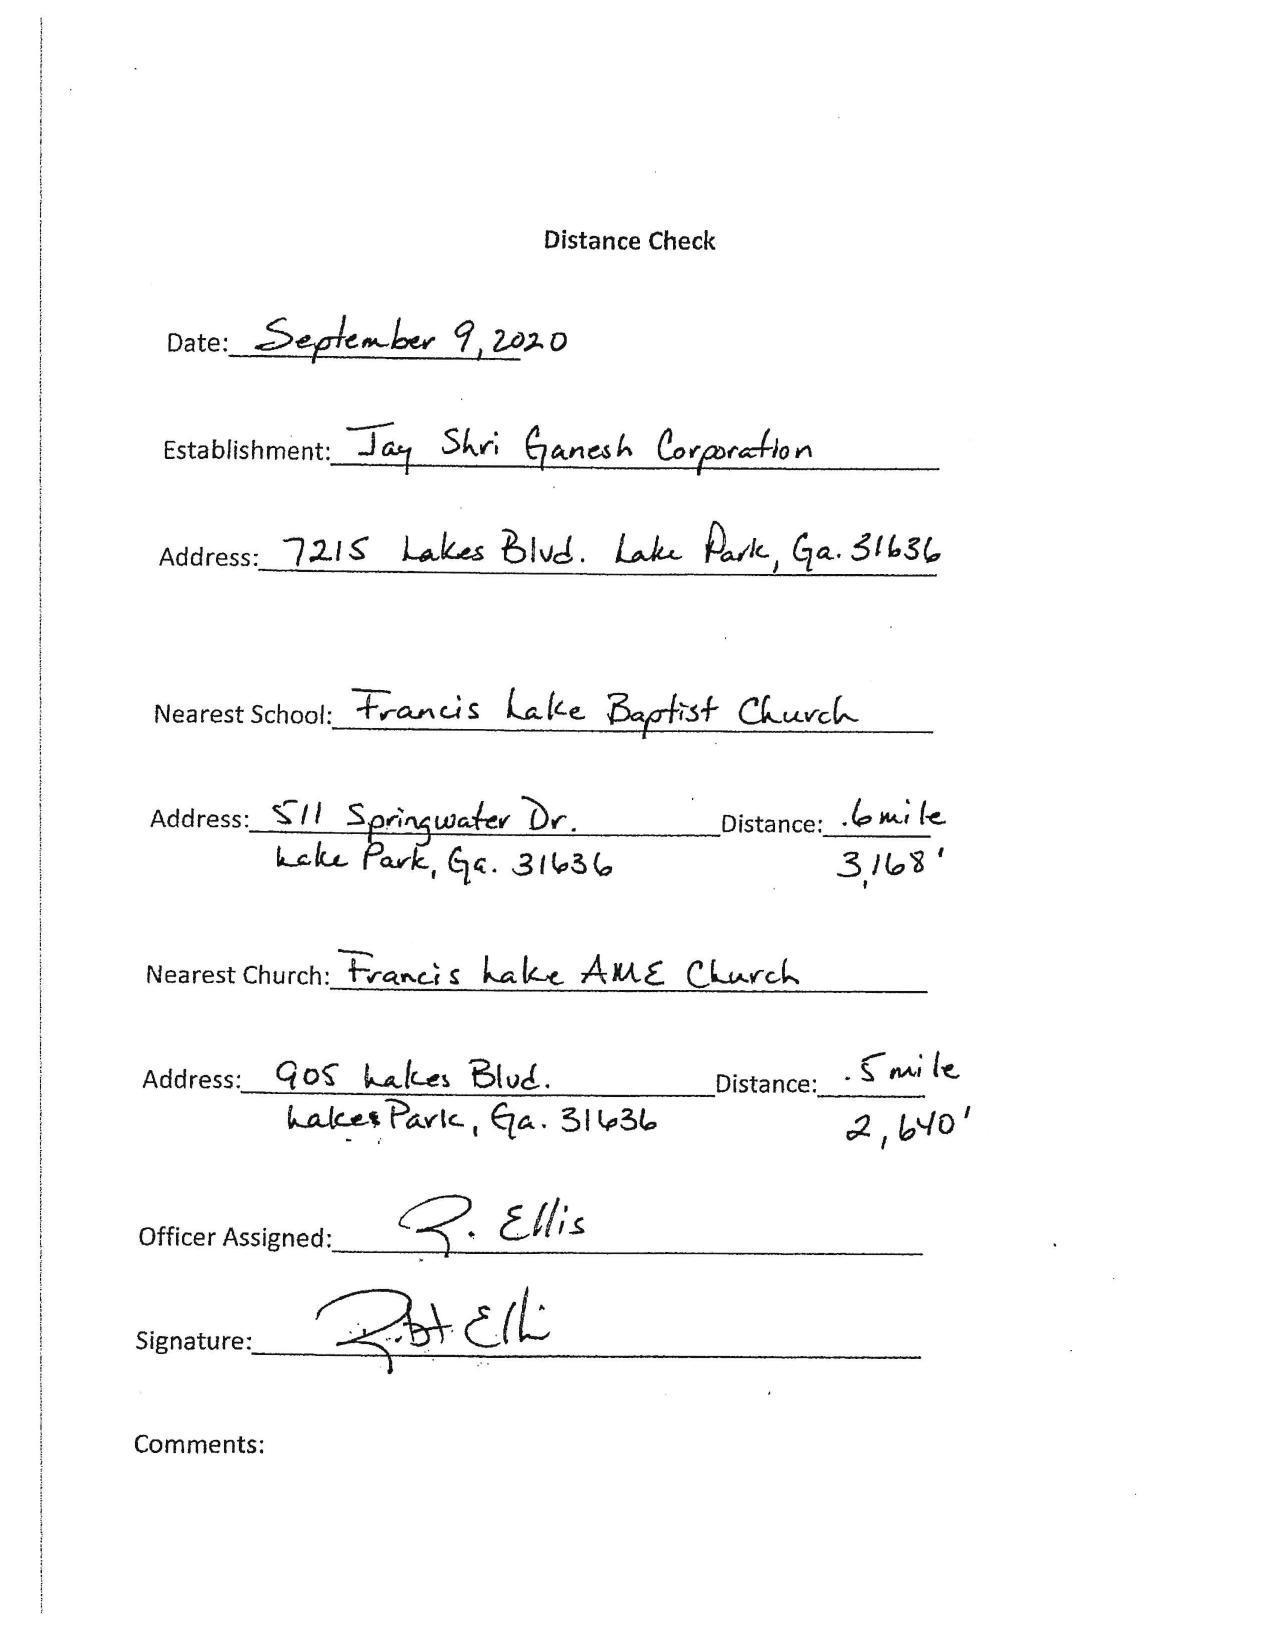 Distance Check
Date: September 9, 2020
Establishment: Jay Shri Ganesh Corporation
Address: 7215 Lakes Blvd. Lake Park, Ga. 31636
Nearest School: Francis Lake Baptist Church
Address: 511 Springwater Dr. Distance: .6 mile
Lake Park, Ga. 31636 3,168'
Nearest Church: Francis Lake AME Church
Address: 905 Lakes Blvd. Distance: .5 mile
Lakes Park, Ga. 31636 2,640'
Officer Assigned: R. Ellis
Signature: Robt Elli
Comments: